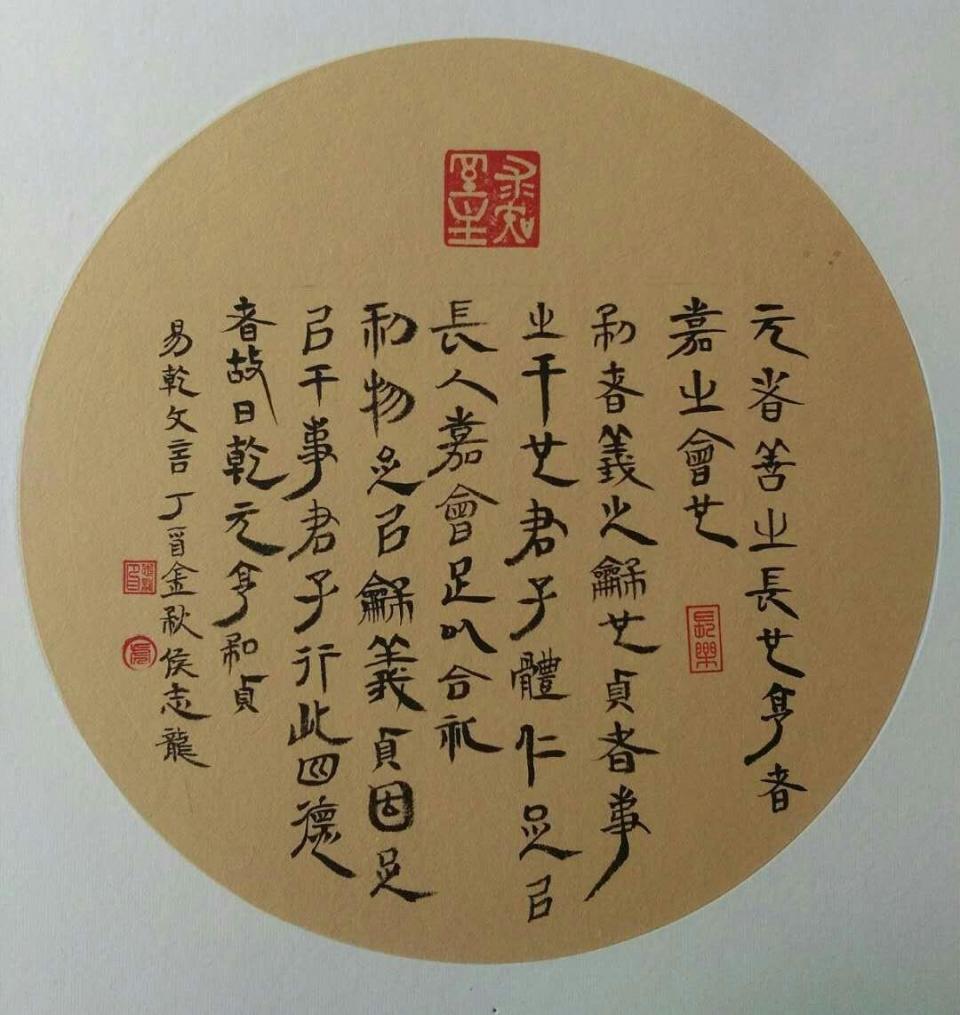 元者善之長也亨者
嘉之會也
利者義之龢也貞者事
之干也君子體仁足㠯
長人嘉會足以合礼
利物足㠯龢義貞固足
㠯干事君子行此四德
者故曰乾元亨利貞
易乾文言丁酉金秋侯志龍
長樂